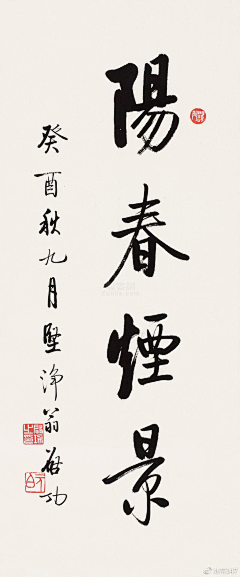 陽春煙景
癸酉秋九月堅淨翁啟功